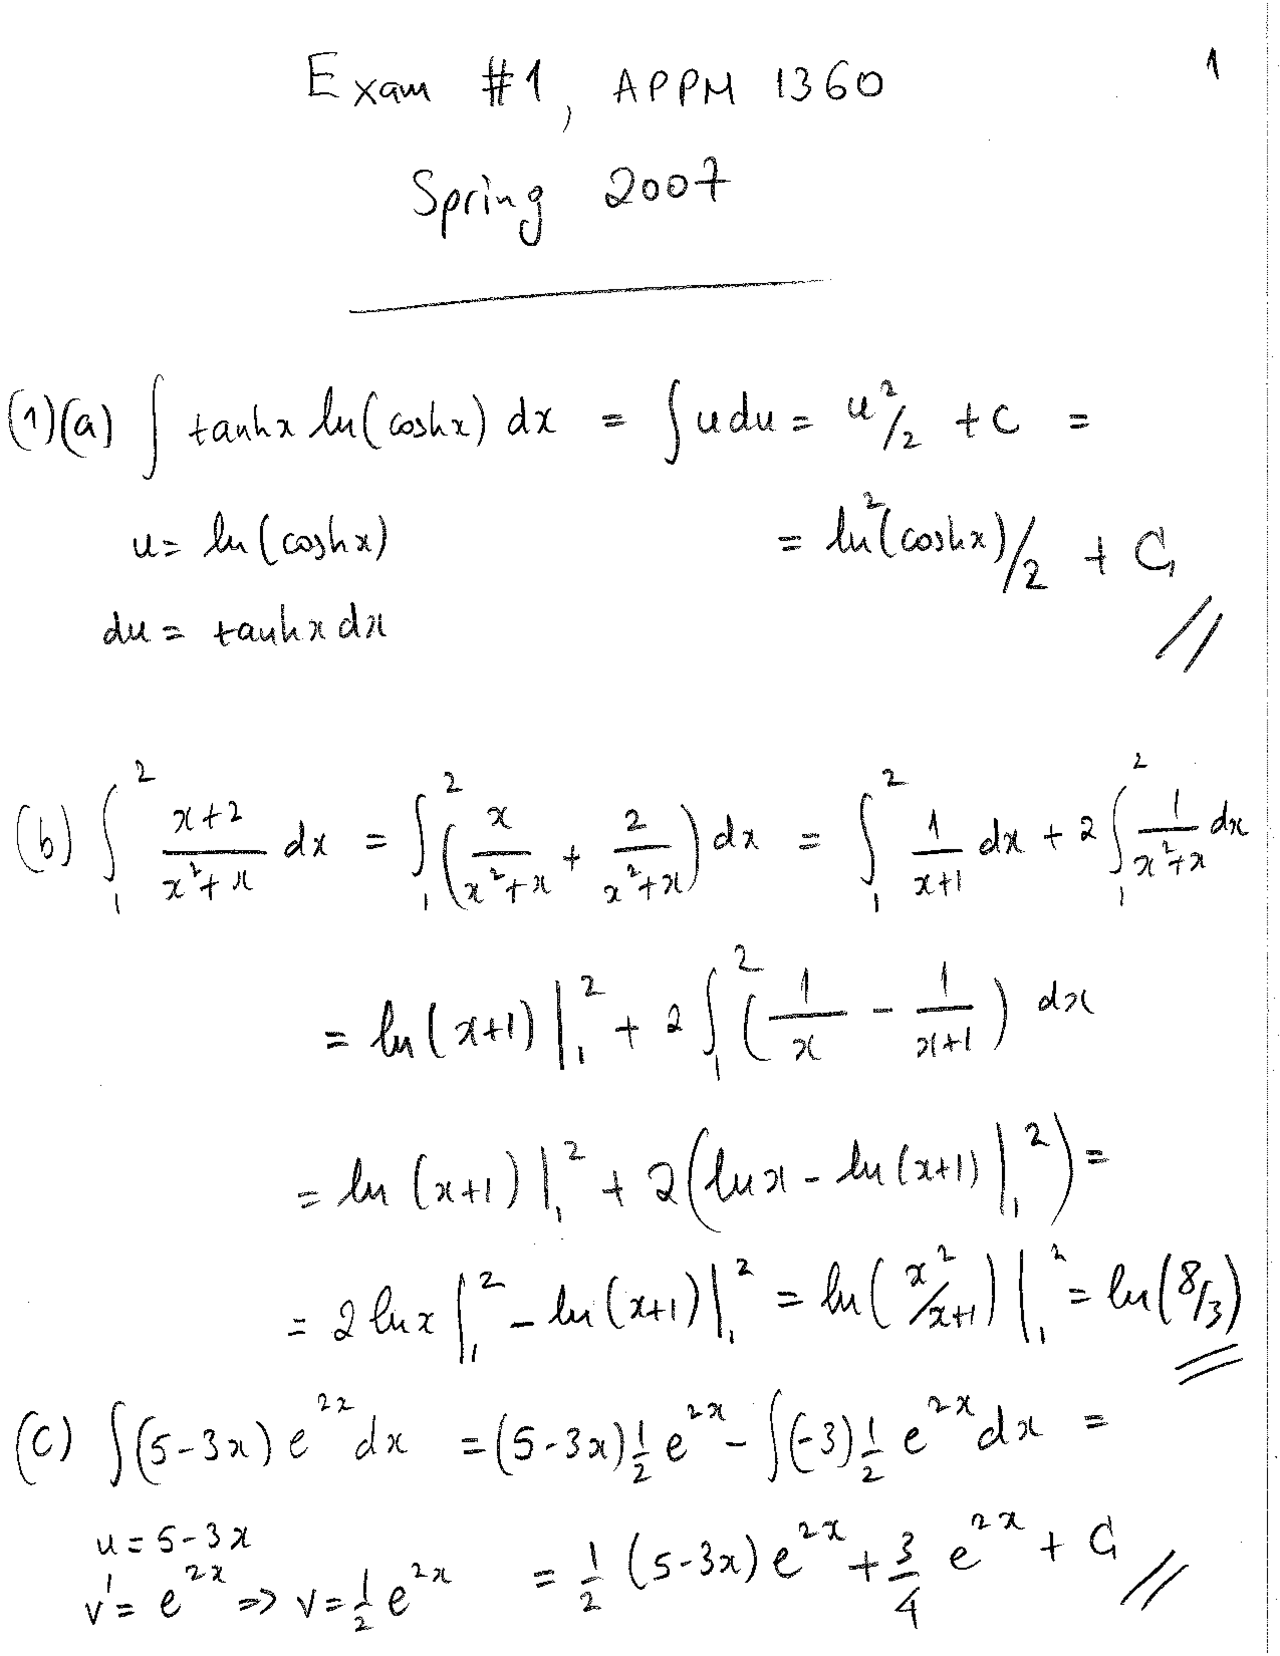 1
Exam #1, APPM 1360
Spring 2007
(1)(a) ∫ tanhx ln(coshx) dx = ∫ u du = u²/2 + C =
u = ln(coshx) = ln²(coshx)/2 + C,
du = tanhx dx //
(b) ∫₁² (x+2)/(x²+x) dx = ∫₁² (x/(x²+x) + 2/(x²+x)) dx = ∫₁² 1/(x+1) dx + 2∫₁² 1/(x²+x) dx
= ln(x+1)|₁² + 2∫₁² (1/x - 1/(x+1)) dx
= ln(x+1)|₁² + 2(lnx - ln(x+1)|₁²) =
= 2 lnx|₁² - ln(x+1)|₁² = ln(x²/x+1)|₁² = ln(8/3)
(C) ∫(5-3x)e²ˣdx = (5-3x)½e²ˣ - ∫(-3)½e²ˣdx =
u = 5-3x
v' = e²ˣ ⇒ v = ½e²ˣ = ½(5-3x)e²ˣ + ¾e²ˣ + C, //